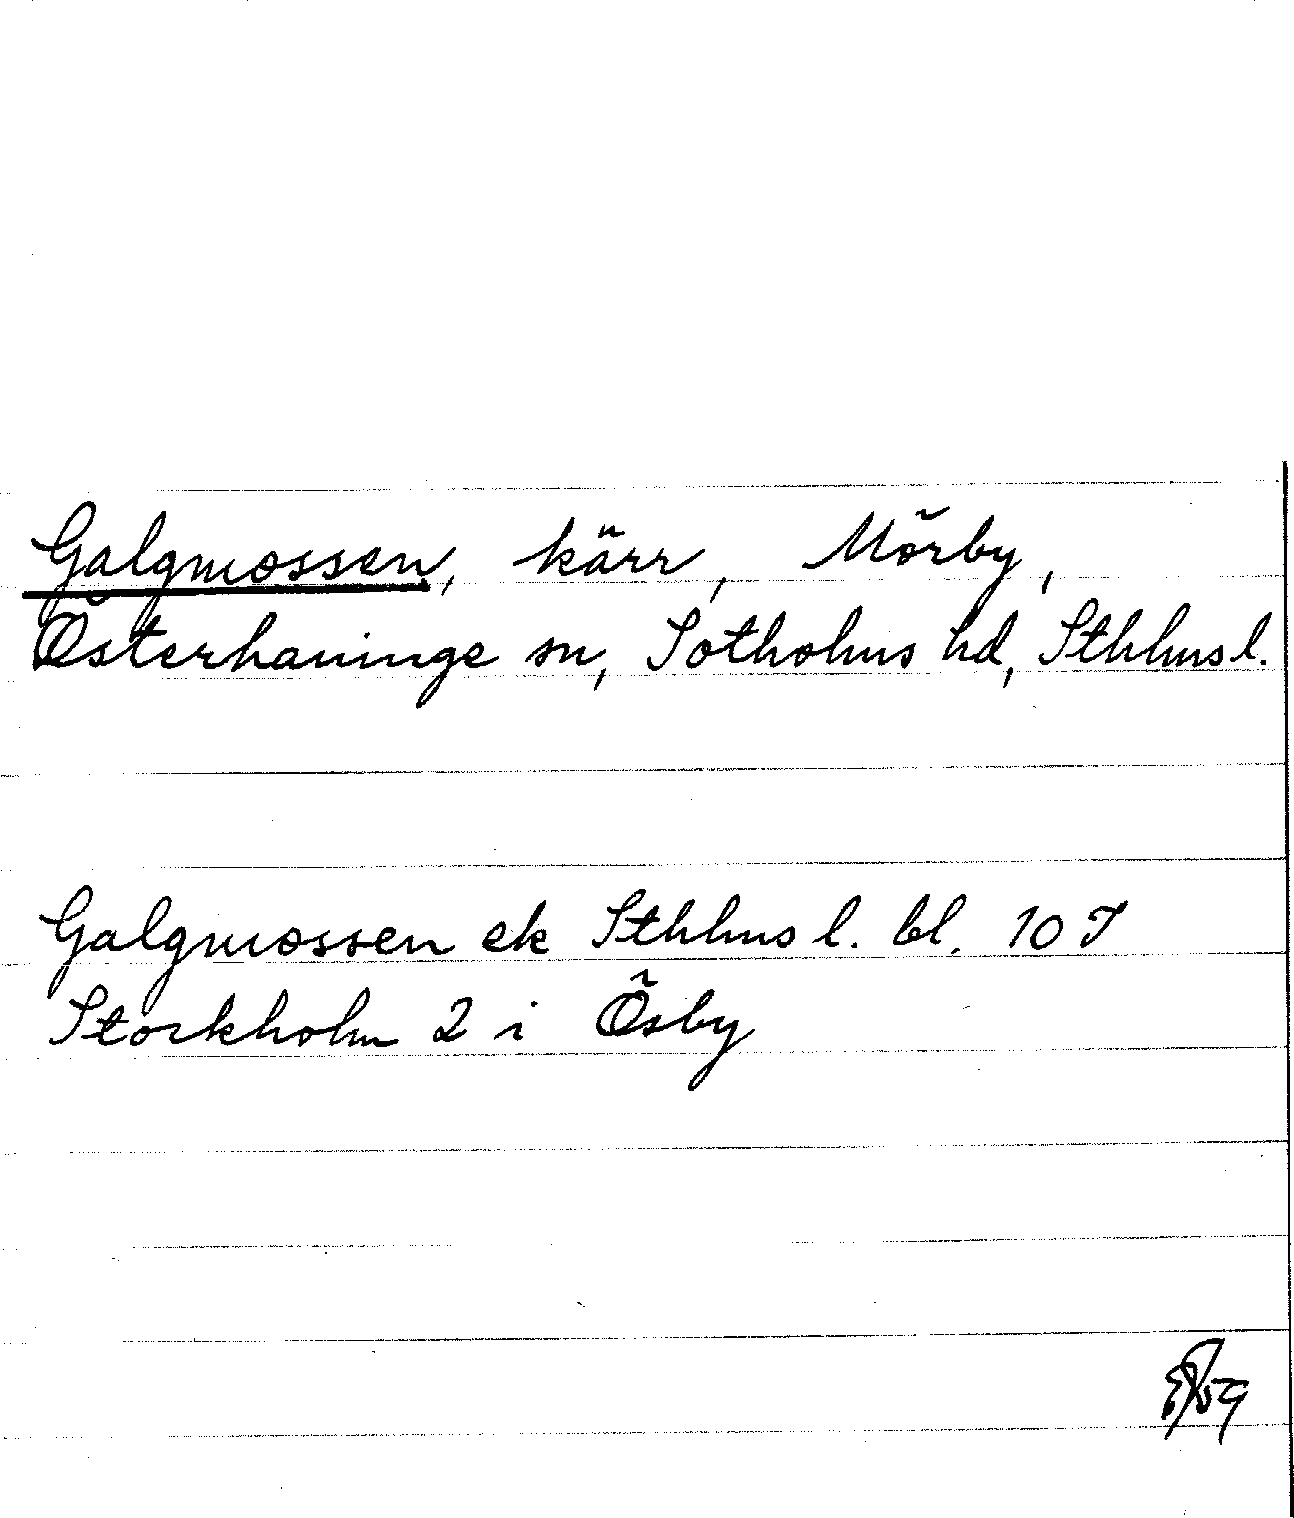 Galgmossen, kärr, Mörby,
Österhaninge sn, Sotholms hd, Sthlms l.
Galgmossen ek Sthlms l. bl. 10 I
Stockholm 2 i Ösby